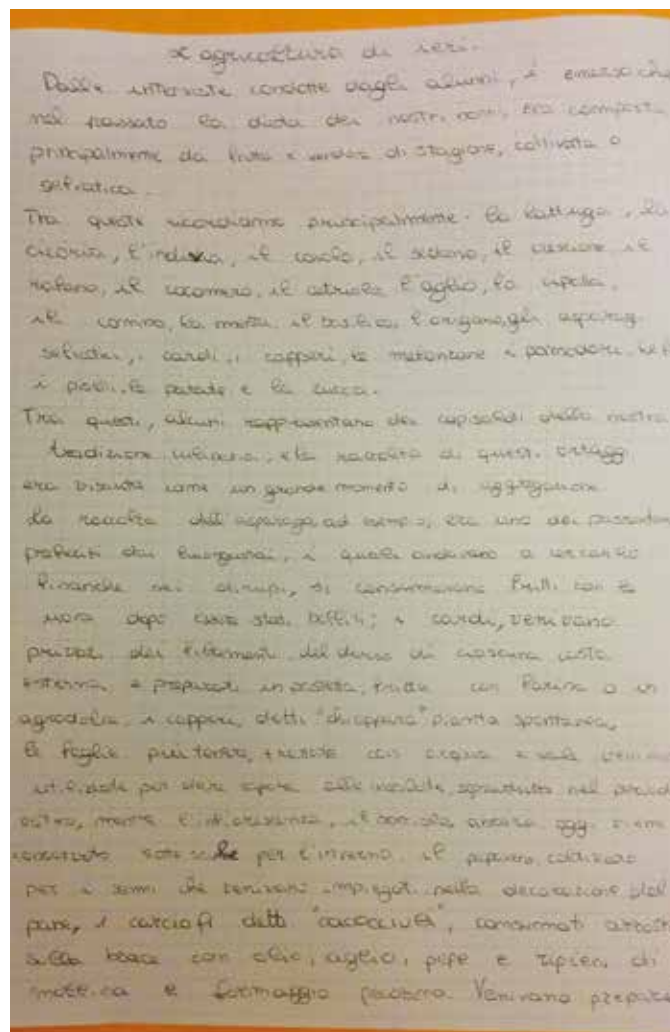 L'agricoltura di ieri.
Dalle interviste condotte dagli alunni, è emerso che
nel passato la dieta dei nostri nonni, era composta
principalmente da frutta e verdura di stagione, coltivata o
selvatica.
Tra queste ricordiamo principalmente: la lattuga, la
cicoria, l'indivia, il cavolo, il sedano, il crescione, il
rafano, il cocomero, il cetriolo, l'aglio, la cipolla,
il comino, la menta, il basilico, l'origano, gli asparagi
selvatici, i cardi, i capperi, le melanzane, i pomodori,
i piselli, le patate e la zucca.
Tra questi, alcuni rappresentano dei capisaldi della nostra
tradizione culinaria, e la raccolta di questi ortaggi
era vissuta come un grande momento di aggregazione.
La raccolta dell'asparago, ad esempio, era uno dei passatempi
preferiti dai, i quali andavano a cercarlo
finanche nei dirupi, si consumavano fritti con le
uova dopo essere stati bolliti; i cardi, venivano
privati dei filamenti del dorso di ciascuna costa
esterna, e preparati in, fritta con farina o in
agrodolce, i capperi, detti "chiappara" pianta spontanea,
le foglie più tenere, trattate con acqua e sale venivano
utilizzate per dare sapore alle insalate, soprattutto nel periodo
estivo, mentre l'infiorescenza, il bocciolo ancora oggi viene
conservato sotto sale per l'inverno. il papavero, coltivato
per i semi che venivano impiegati nella decorazione del
pane, i carciofi detti, consumati arrostiti
sulla brace con olio, aglio, pepe e ripieni di
mollica e formaggio pecorino. Venivano preparati